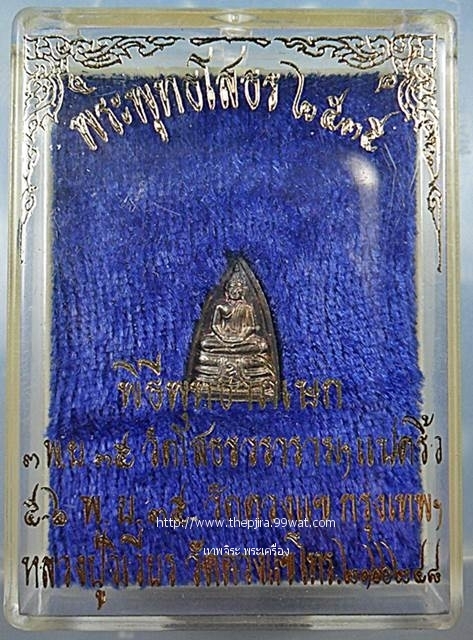 พระพุทธโสธร ๒๕๓๕
พิธีพุทธาภิเษก
๓ พ.ย. ๓๕ วัดโสธรวราราม แปดริ้ว
๕,๖ พ.ย. ๓๕ วัดดวงแข กรุงเทพฯ
http://www.thepjira.99wat.com
เทพจิระ พระเครื่อง
หลวงปู่วิเวียร วัดดวงแข โทร.